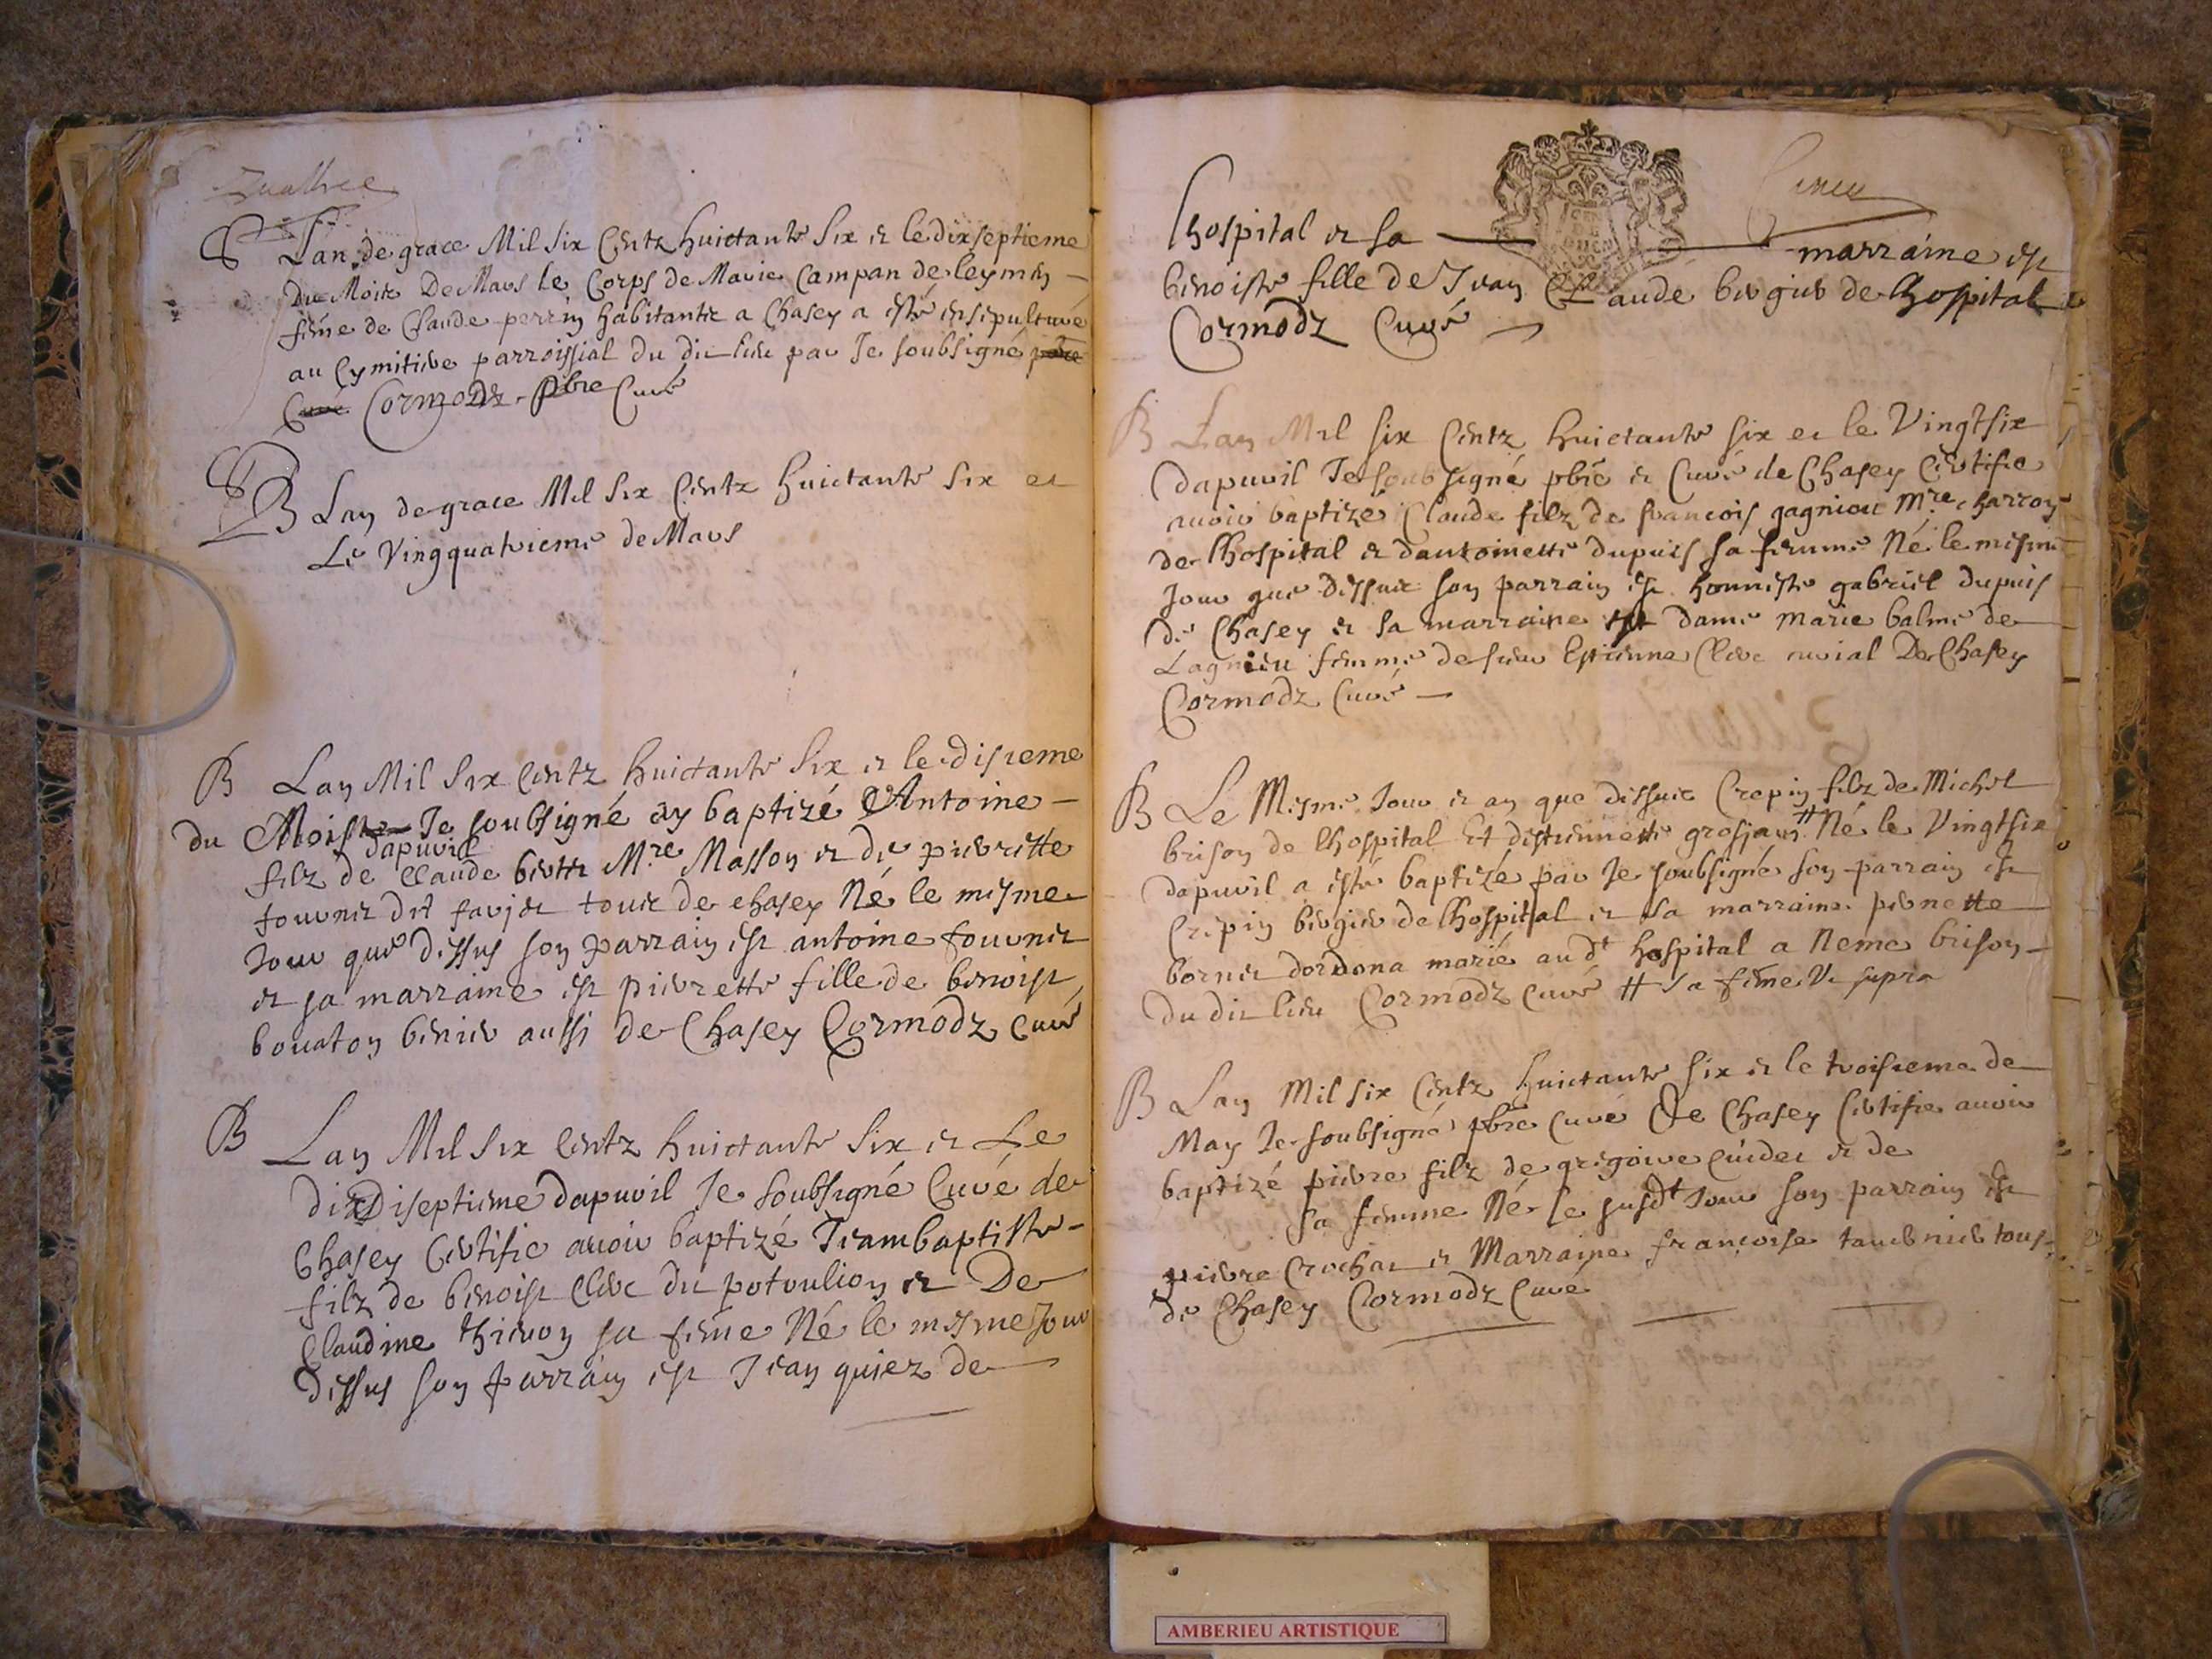 quattre
S Lan de grace Mil six Centz huictante six et le dixseptieme
du Mois De Mars le Corps de Marie Campan de leymen
feme de Claude perrin habitante a Chasey a esté ensepulturé
au Cymitiere parroissial du dit lieu par Je soubsigné pbre
Curé Cormodz pbre Curé
B Lan de grace Mil six Centz huictante six et
Le Vingquatrieme de Mars
B Lan Mil six Centz huictante six et le disieme
du Mois Je soubsigné ay baptizé Antoine
dapuril
filz de Claude Mre Masson et de pierrette
fournier dit tout de chasey Né le mesme
Jour que dessus son parrain est antoine fournier
et sa marraine est pierrette fille de benoist
bouaton aussi de Chasey Cormodz curé
B Lan Mil six Centz huictante six et Le
dixDiseptieme dapuril Je soubsigné Curé de
Chasey Certifie avoir baptizé Jeambaptiste
filz de benoist Clerc du potoulion et De
Claudine thieron sa feme Né le mesme Jour
dessus son parrain est Jean quiez de
Cincq
lhospital et sa marraine est
benoiste fille de Jean Claude bergier de lhospital
Cormodz Curé
B Lan Mil six Centz huictante six et le Vingtsix
dapuril Je soubsigné pbre et Curé de Chasey Certifie
avoir baptizé Claude filz de francois gagniou Mre charron
de lhospital et dantoinette dupuis sa femme Né le mesme
Jour que dessus son parrain est honneste gabriel dupuis
de Chasey et sa marraine est dame marie balme de
Lagnieu femme de sieur Estienne Clerc de Chasey
Cormodz Curé
B Le Mesme Jour et an que dessus Crepin filz de Michel
brison de lhospital Et destiennette grosjean # Né le Vingtsix
dapuril a esté baptizé par Je soubsigné son parrain est
Crepin bergier de lhospital et sa marraine pernette
bornet dordona marié au dt hospital a Neme brison
du dit lieu Cormodz curé # sa feme Vt supra
B Lan Mil six Centz huictante six et le troisieme de
May Je soubsigné pbre curé De Chasey Certifie avoir
baptizé pierre filz de gregoire cuidet et de
sa femme Né le susdt Jour son parrain est
pierre Crochat et Marraine francoise tavernier tous
de Chasey Cormodz Curé
AMBERIEU ARTISTIQUE